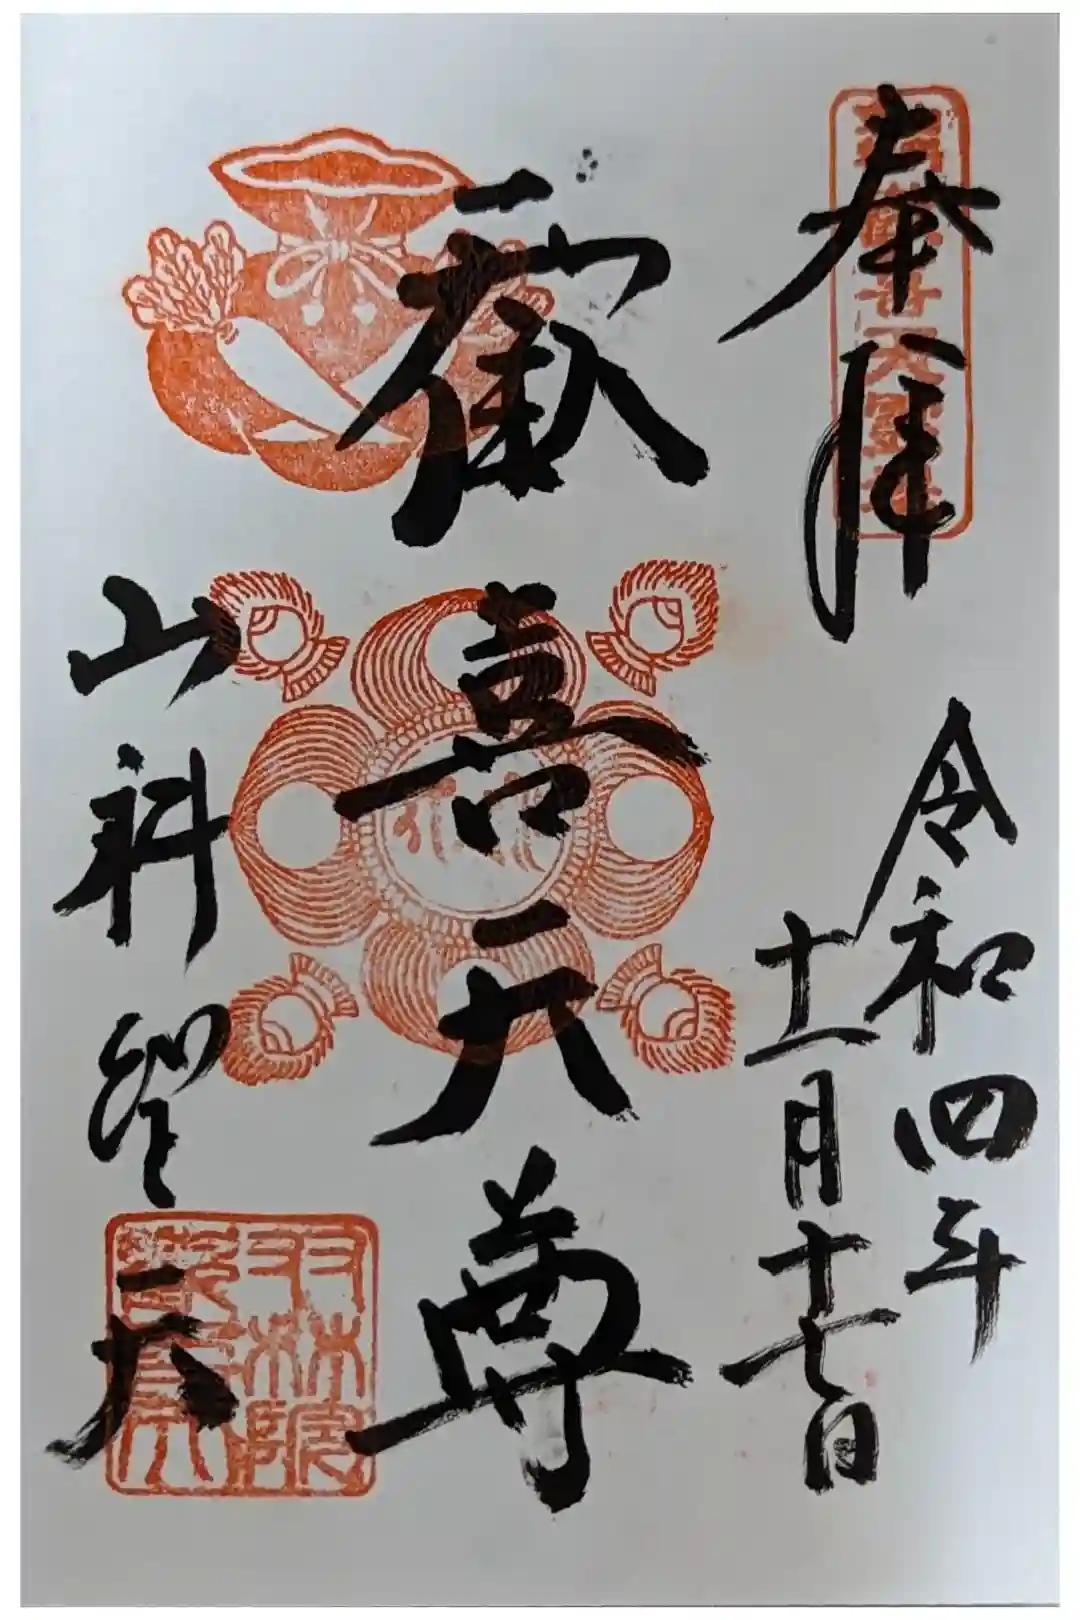 奉拝
令和四年
十一月十七日
歓喜天尊
山科聖天
双林院